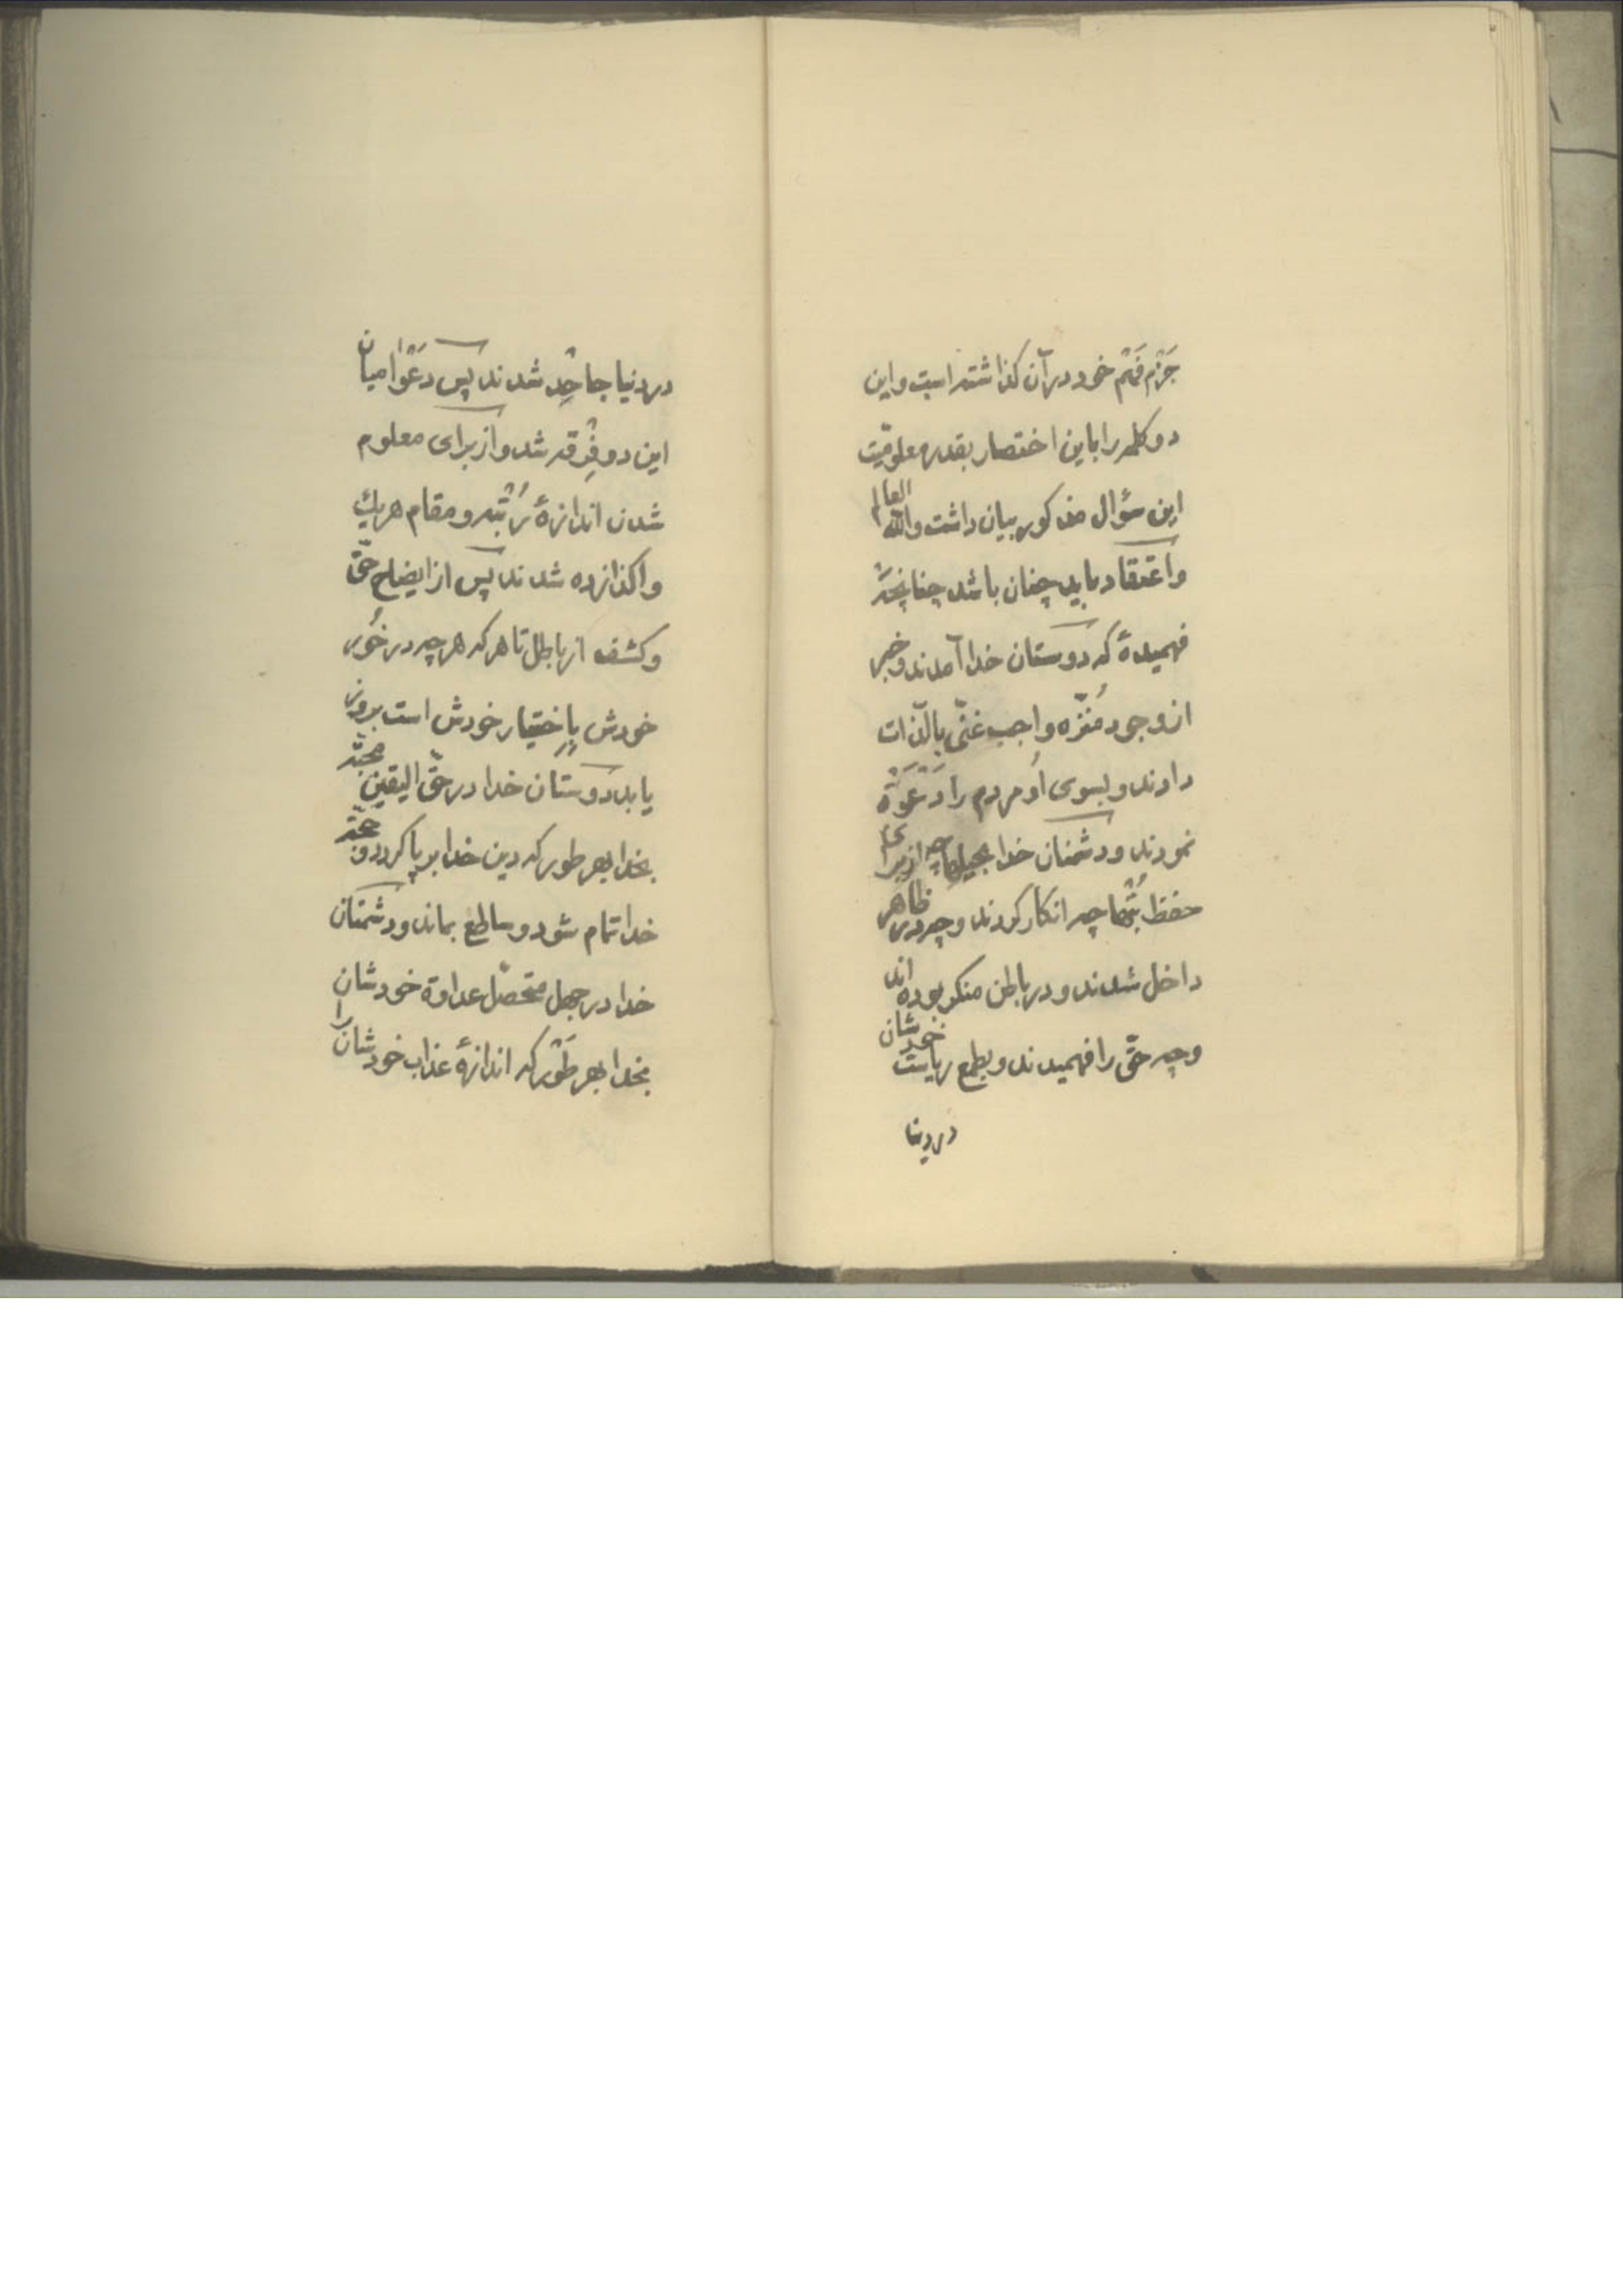 جَزْم فَهْم خود در آن کذاشته است و این
دو کلمه را باین اختصار بقدر معلومیّت
این سؤال مذکور بیان داشت والله العالم
و اعتقاد باید چنان باشد چنانچه
فهمیدهٔ که دوستان خدا آمدند و خبر
از وجود مُنَزّه واجب غنیّ بالذّات
دادند و بسوی اُو مردم را دَعْوَة
نمودند و دشمنان خدا بحیلها چه از برای
حفظ بُتْها چه انکار کردند و چه در ظاهر
داخل شدند و در باطن منکر بوده اند
و چه حقّ را فهمیدند و بطمع ریاست خودشان
در دنیا
در دنیا جاحِد شدند پس دَعْوَا میان
این دو فِرْقه شد و از برای معلوم
شدن اندازهٔ رُتْبه و مقام هریک
واکذارده شدند پس از ایضاح حقّ
و کشف از باطل تا هر که هر چه در خُور
خودش بِاِختیار خودش است بروز
یابد دوستان خدا در حقّ الیقین محبّة
بخدا بهر طور که دین خدا بر پا کردد و حجّة
خدا تمام شود و ساطع بماند و دشمنان
خدا در جهل متحصّل عداوة خودشان
بخدا بهر طَوْر که اندازهٔ عذاب خودشان را